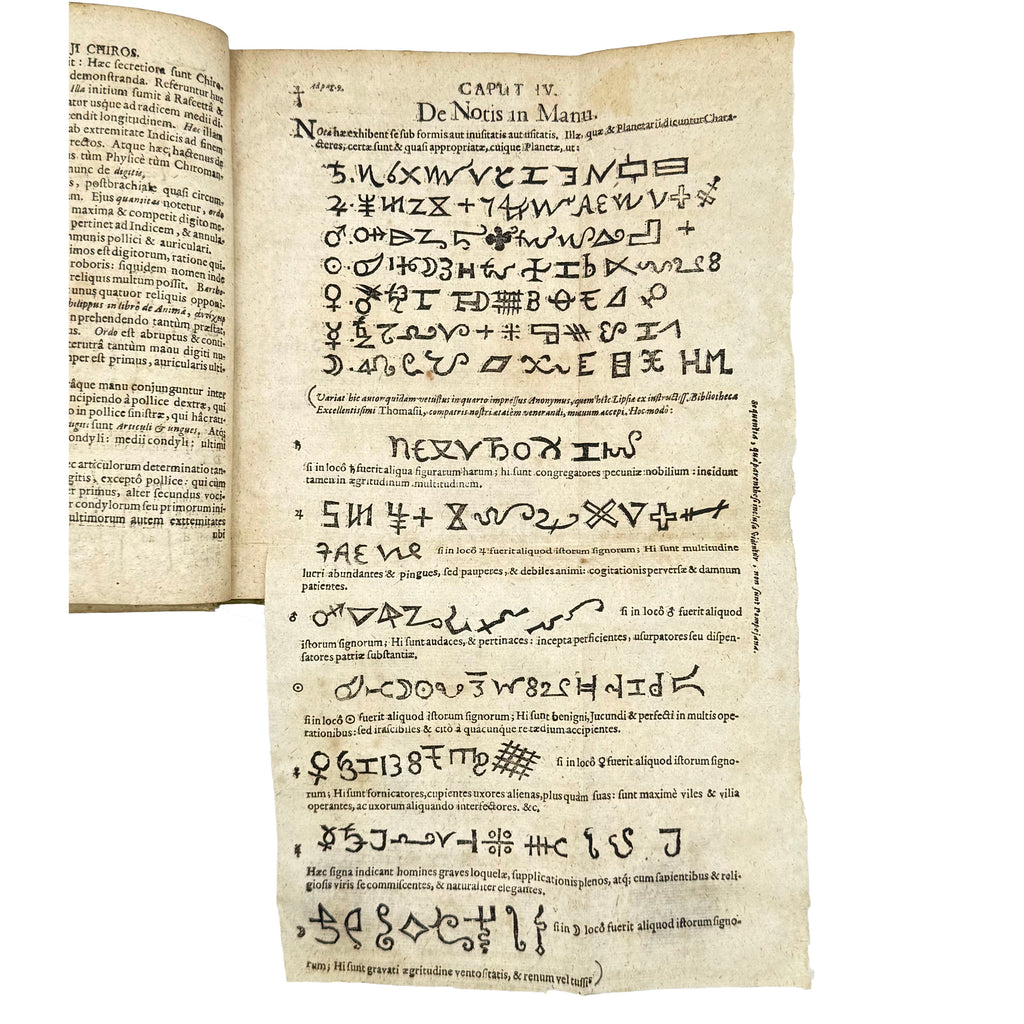 JI CHIROS.
it : Hæc ſecretiora ſunt Chiro-
demonſtranda. Referuntur huc
Illa initium ſumit à Raſcettâ &
atur usque ad radicem medii di-
endit longitudinem. Hæc illam
ab extremitate Indicis ad finem
rectos. Atque hæc hactenus de
us tùm Phyſicè tùm Chiroman-
nunc de digitis,
s, poſtbrachiale quaſi circum-
m. Ejus quantitas notetur, ordo
maxima & competit digito me-
pertinet ad Indicem, & annula-
mmunis pollici & auriculari.
imos eſt digitorum, ratione qui-
roboris : ſiquidem nomen inde
reliquis multum poſſit. Bartho-
unus quatuor reliquis opponi-
hilippus in librô de Animâ,
nprehendendo tantùm præſtat,
us. Ordo eſt abruptus & conti-
terutrâ tantùm manu digiti nu-
mper eſt primus, auricularis ulti-
râque manu conjunguntur inter
ncipiendo à pollice dextræ, qui
o in pollice ſiniſtræ, qui hâc rati-
ſunt Articuli & ungues. Atq;
ondyli : medii condyli ; ultimi
ec articulorum determinatio tan-
gitis, exceptô pollice : qui cùm
er primus, alter ſecundus voci-
r condylorum ſeu primorum ini-
ultimorum autem extremitates
ubi
Ad pag. 9.
CAPUT IV.
De Notis in Manu.
Notæ hæ exhibent ſe ſub formis aut inuſitatis aut uſitatis. Illæ, quæ & Planetarii dicuntur Chara-
cteres, certæ ſunt & quaſi appropriatæ, cuique Planetæ, ut :
♄.
♃.
♂
☉.
♀
☿
☽.
(Variat hic autor quidam vetuſtus in quarto impreſſus Anonymus, quem hîc Lipſiæ ex inſtructiſſ. Bibliotheca
Excellentiſſimi Thomaſii, compatris noſtri ætatem venerandi, mutuum accepi. Hoc modô :
♄
ſi in locô ♄ fuerit aliqua figurarum harum ; hi ſunt congregatores pecuniæ nobilium : incidunt
tamen in ægritudinum multitudinem.
♃
ſi in locô ♃ fuerit aliquod iſtorum ſignorum ; Hi ſunt multitudine
lucri abundantes & pingues, ſed pauperes, & debiles animi : cogitationis perverſæ & damnum
patientes.
♂ ſi in locô ♂ fuerit aliquod
iſtorum ſignorum ; Hi ſunt audaces, & pertinaces : incepta perficientes, uſurpatores ſeu diſpen-
ſatores patriæ ſubſtantiæ,
☉
ſi in locô ☉ fuerit aliquod iſtorum ſignorum ; Hi ſunt benigni, Jucundi & perfecti in multis ope-
rationibus : ſed iraſcibiles & citò à quacunque re tædium accipientes.
♀ ſi in locô ♀ fuerit aliquod iſtorum ſigno-
rum ; Hi ſunt fornicatores, cupientes uxores alienas, plus quàm ſuas : ſunt maximè viles & vilia
operantes, ac uxorum aliquando interfectores. &c.
☿
Hæc ſigna indicant homines graves loquelæ, ſupplicationis plenos, atq; cum ſapientibus & reli-
gioſis viris ſe commiſcentes, & naturaliter elegantes.
☽ ſi in ☽ locô fuerit aliquod iſtorum ſigno-
rum ; Hi ſunt gravati ægritudine ventoſitatis, & renum vel tuſſis)
Sequentia, quæ parentheſi incluſa videntur, non ſunt Pompejana.